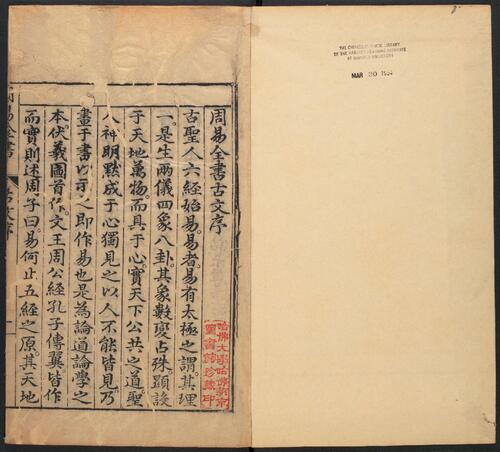 周易全書古文序
古聖人六經始易。易者。易有太極之謂。其理
一。是生兩儀四象八卦。其象數變占殊。顯設
于天地萬物。而具于心。實天下公共之道。聖
人神明默成于心。獨見之。以人不能皆見。乃
畫于書以示之。即作易也。是為論道論學之
本。伏羲圖首作。文王周公經。孔子傳翼皆作。
而實則述。周子曰。易何止五經之原。其天地
周易全書
古文序
一
哈佛大學哈佛燕京
圖書館珍藏印
THE CHINESE-JAPANESE LIBRARY
OF THE HARVARD-YENCHING INSTITUTE
AT HARVARD UNIVERSITY
MAR 20